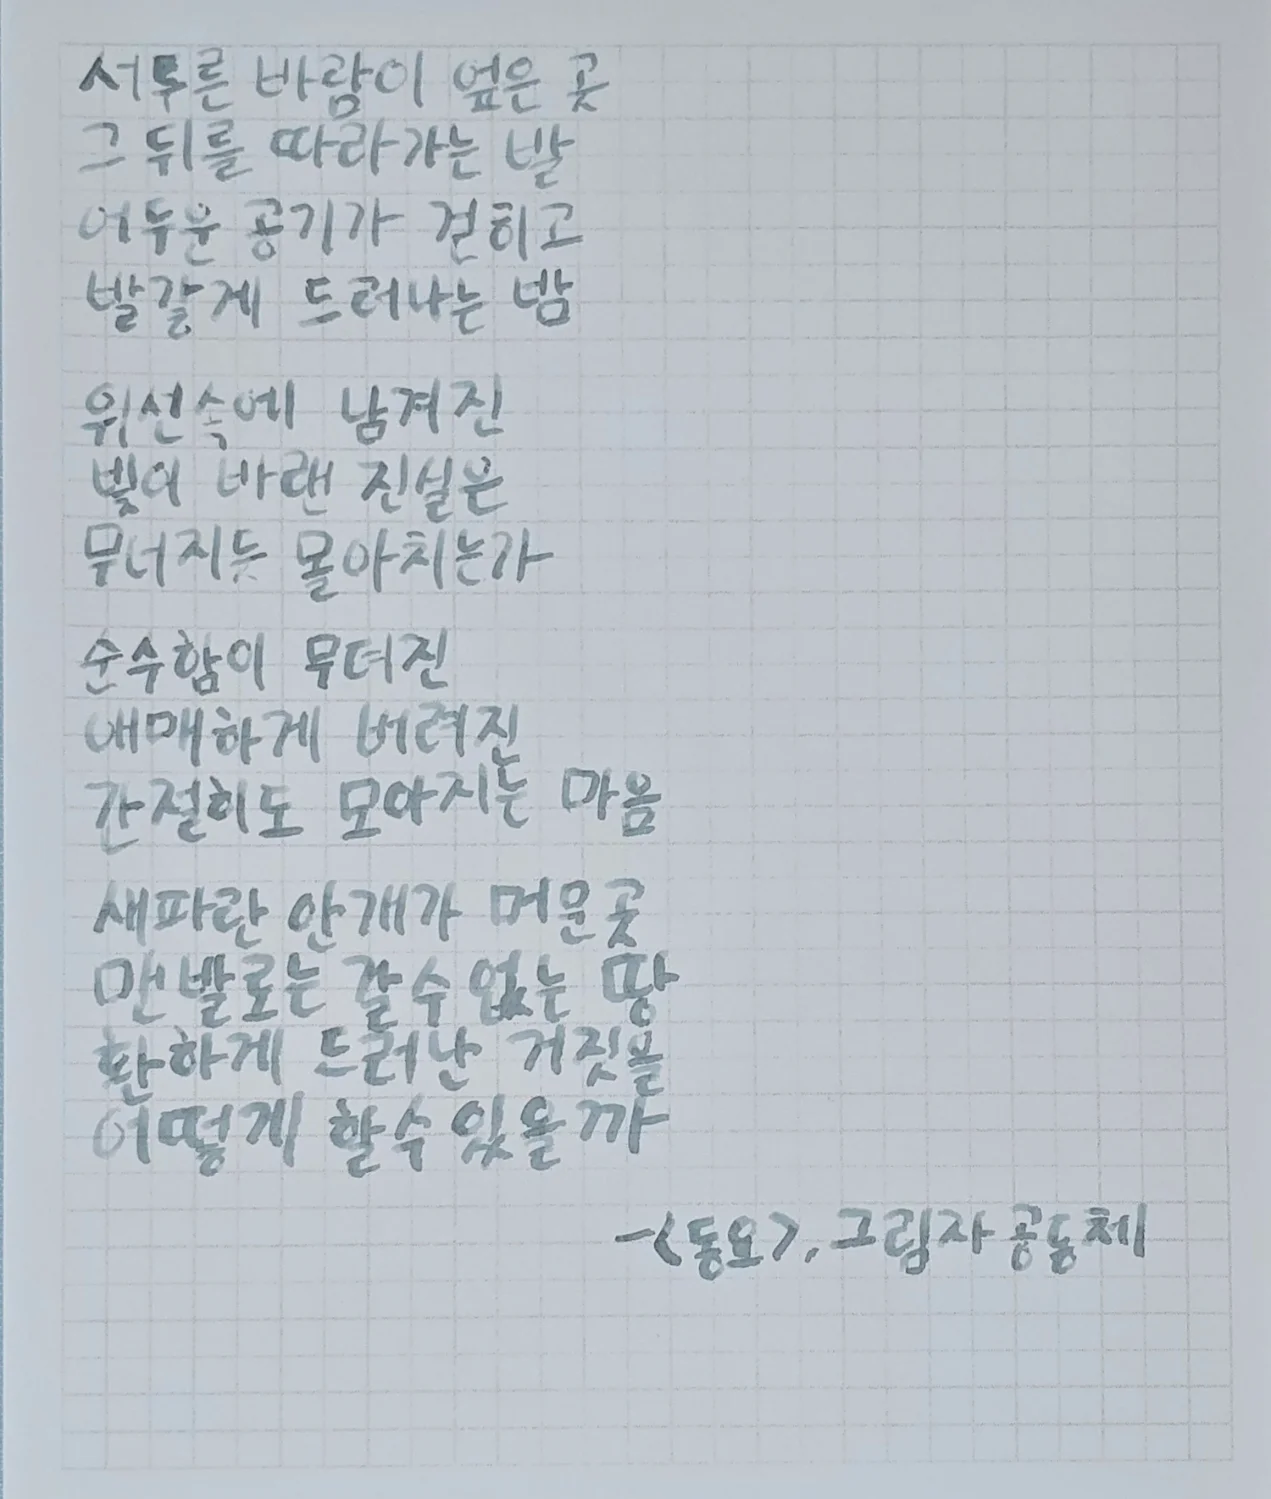 서투른 바람이 엎은 곳
그 뒤를 따라가는 발
어두운 공기가 걷히고
발갛게 드러나는 밤
위선속에 남겨진
빛이 바랜 진실은
무너지듯 몰아치는가
순수함이 무뎌진
애매하게 버려진
간절히도 모아지는 마음
새파란 안개가 머문곳
맨발로는 갈수없는 땅
환하게 드러난 거짓을
어떻게 할수있을까
-<동요>, 그림자 공동체